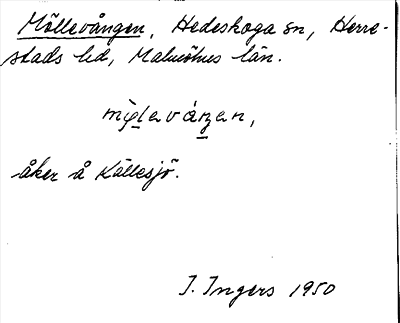 Möllevången, Hedeskoga sn, Herre-
stads hd, Malmöhus län.
åker å Källesjö.
I. Ingers 1950